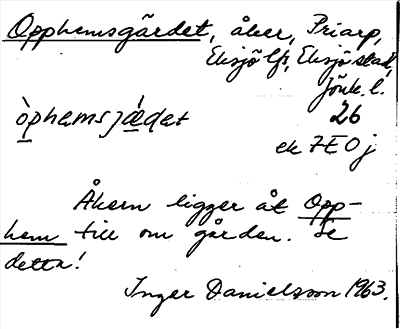 Opphemsgärdet, åker, Priarp,
Eksjö lfs, Eksjö stad,
Jönk. l.
òphemsjǽdet 26
ek 7E0j
Åkern ligger åt Opp-
hem till om gården. Se
detta!
Inger Danielsson 1963.